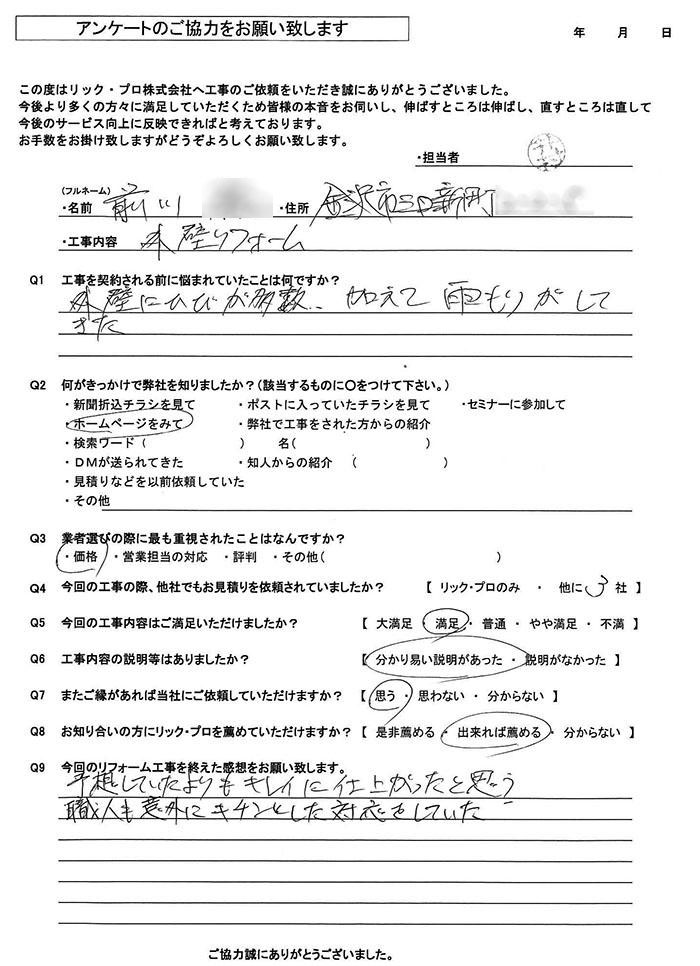 アンケートのご協力をお願い致します
年 月 日
この度はリック・プロ株式会社へ工事のご依頼をいただき誠にありがとうございました。
今後より多くの方々に満足していただくため皆様の本音をお伺いし、伸ばすところは伸ばし、直すところは直して
今後のサービス向上に反映できればと考えております。
お手数をお掛け致しますがどうぞよろしくお願い致します。
・担当者
(フルネーム)
・名前 前川 ・住所 金沢市三口新町
・工事内容 外壁リフォーム
Q1 工事を契約される前に悩まれていたことは何ですか？
外壁にひびが多数.. 加えて雨もりがして
きた
Q2 何がきっかけで弊社を知りましたか？(該当するものに〇をつけて下さい。)
・新聞折込チラシを見て ・ポストに入っていたチラシを見て ・セミナーに参加して
・ホームページをみて ・弊社で工事をされた方からの紹介
・検索ワード ( ) 名( )
・DMが送られてきた ・知人からの紹介 ( )
・見積りなどを以前依頼していた
・その他
Q3 業者選びの際に最も重視されたことはなんですか？
・価格 ・営業担当の対応 ・評判 ・その他( )
Q4 今回の工事の際、他社でもお見積りを依頼されていましたか？ 【 リック・プロのみ ・ 他に 3 社 】
Q5 今回の工事内容はご満足いただけましたか？ 【 大満足 ・ 満足 ・ 普通 ・ やや満足 ・ 不満 】
Q6 工事内容の説明等はありましたか？ 【 分かり易い説明があった ・ 説明がなかった 】
Q7 またご縁があれば当社にご依頼していただけますか？ 【 思う ・ 思わない ・ 分からない 】
Q8 お知り合いの方にリック・プロを薦めていただけますか？ 【 是非薦める ・ 出来れば薦める ・ 分からない 】
Q9 今回のリフォーム工事を終えた感想をお願い致します。
予想していたよりもキレイに仕上がったと思う
職人も意外にキチンとした対応をしていた
ご協力誠にありがとうございました。